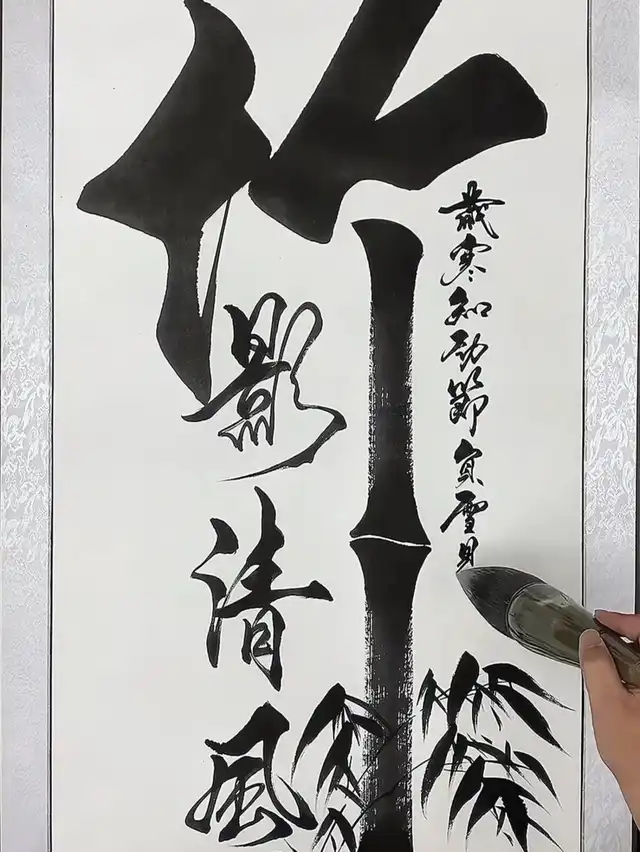 竹影清風
歲寒知勁節負雪見